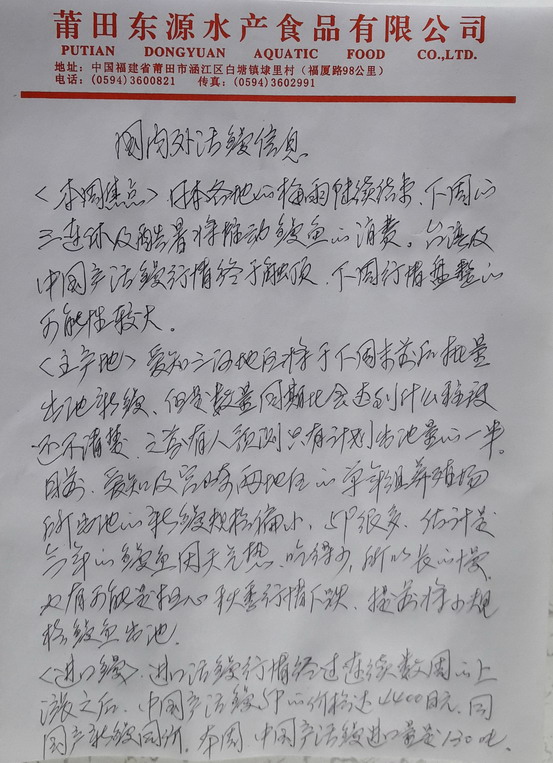 莆田东源水产食品有限公司
PUTIAN DONGYUAN AQUATIC FOOD CO.,LTD.
地址：中国福建省莆田市涵江区白塘镇埭里村（福厦路98公里）
电话：(0594)3600821 传真：(0594)3602991
国内外活鳗信息
<本周焦点>日本各地的梅雨陆续结束、下周的
三连休及酷暑将推动鳗鱼的消费。台湾及
中国产活鳗行情终于触顶、下周行情盘整的
可能性较大。
<主产地>爱知三河地区将于下周末前后批量
出池新鳗、但是数量同期比会达到什么程度
还不清楚、之前有人预测只有计划出池量的一半。
目前、爱知及宫崎两地区的单年组养殖场
所出池的新鳗规格偏小、5P很多、估计是
今年的鳗鱼因天气热、吃得少，所以长的慢、
也有可能是担心秋季行情下跌、提前将小规
格鳗鱼出池.
<进口鳗>.进口活鳗行情经过连续数周的上
涨之后、中国产活鳗5P的价格达4400日元、同
国产新鳗同价。本周、中国产活鳗进口量是130吨、